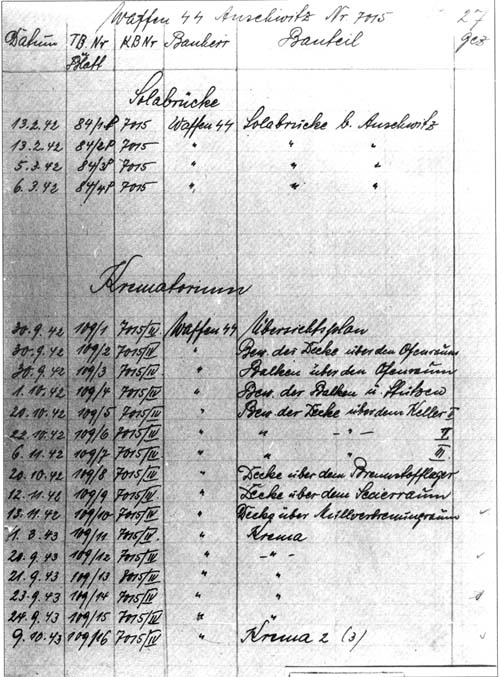 Waffen SS Auschwitz Nr 7015 27
Datum TB. Nr KB Nr Bauherr Bauteil gez
Blatt
Solabrücke
13.2.42 84/1 7015 Waffen SS Solabrücke b. Auschwitz
13.2.42 84/2 7015 " " "
5.3.42 84/3 7015 " " "
6.3.42 84/4 7015 " " "
Krematorium
30.9.42 109/1 7015/IV. Waffen SS Übersichtsplan
30.9.42 109/2 7015/IV " Bew. der Decke über den Ofenraum
30.9.42 109/3 7015/IV " Balken über den Ofenraum
1.10.42 109/4 7015/IV " Bew. der Balken u Stützen
20.10.42 109/5 7015/IV " Bew. der Decke über dem Keller I
22.10.42 109/6 7015/IV " " - " - II
6.11.42 109/7 7015/IV " " " III.
20.10.42 109/8 7015/IV " Decke über dem Brennstofflager
12.11.42 109/9 7015/IV " Decke über dem Sezierraum
13.11.42 109/10 7015/IV " Decke über Müllverbrennungsraum
1.3.43 109/11 7015/IV. " Krema
20.9.43 109/12 7015/IV " - " -
21.9.43 109/13 7015/IV " "
23.9.43 109/14 7015/IV " "
24.9.43 109/15 7015/IV " "
9.10.43 109/16 7015/IV " Krema 2 (3)